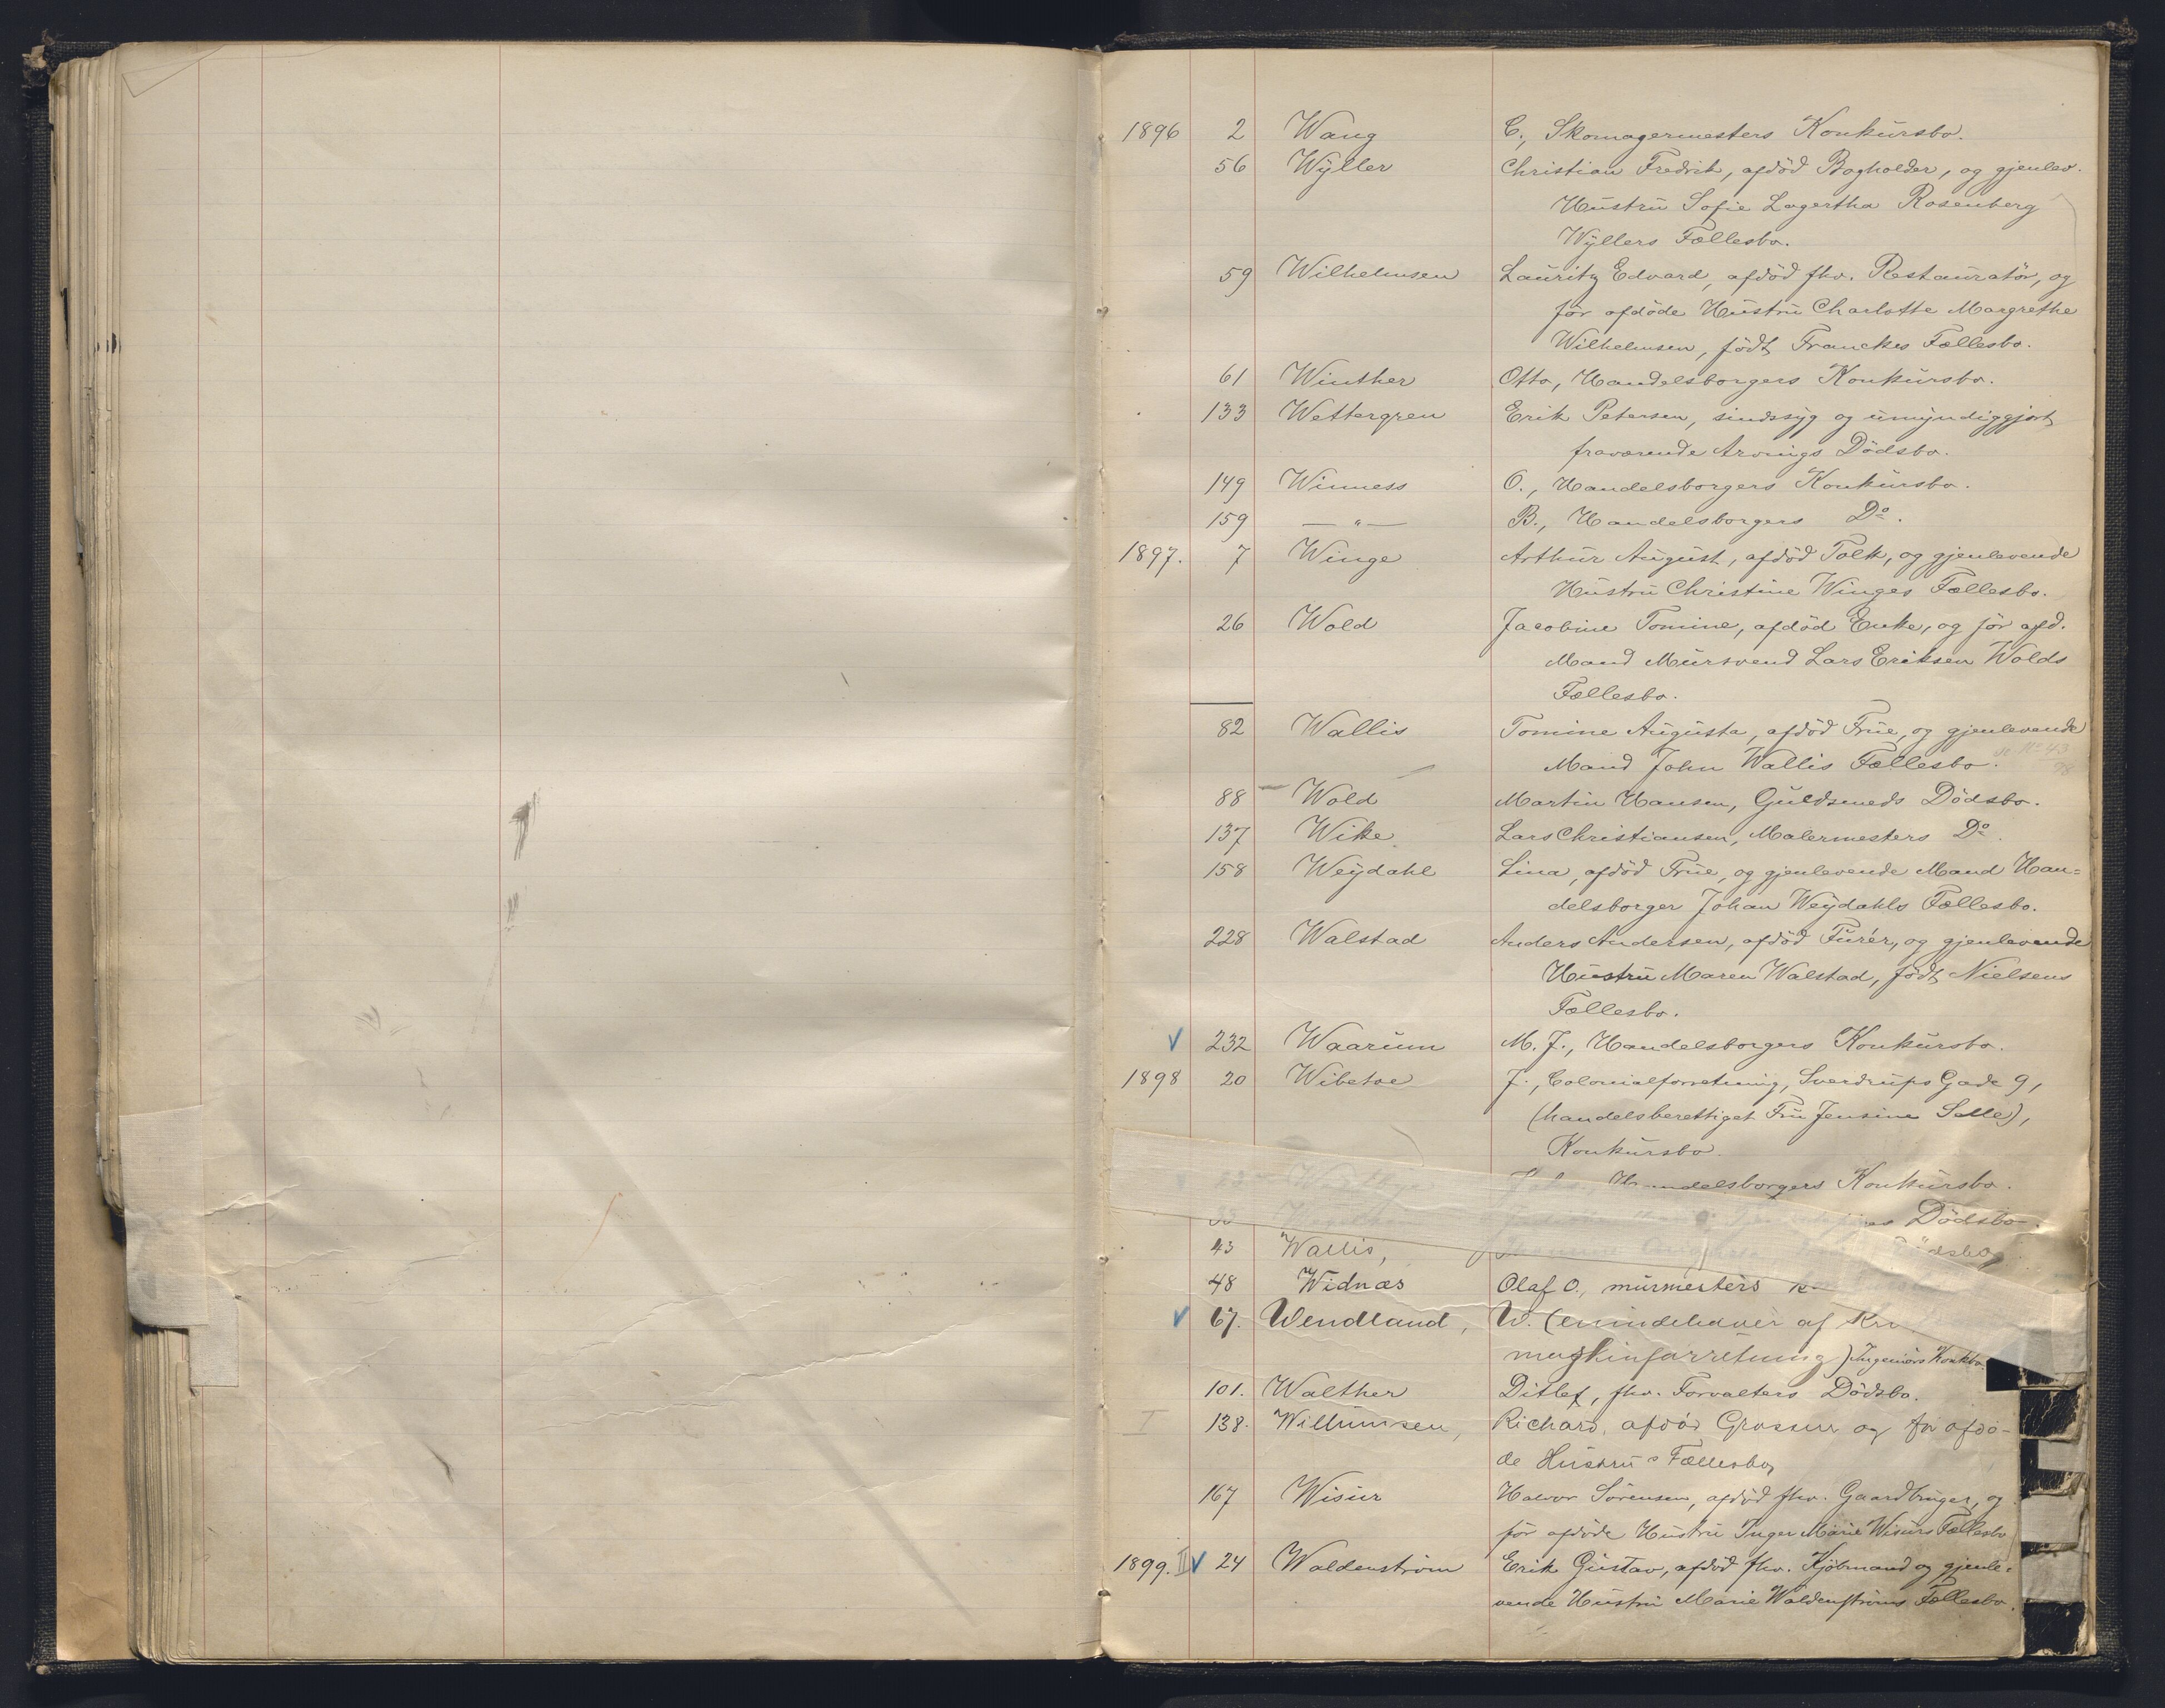 1896 2 Wang C., Skomagermesters Konkursbo.
56 Wyller Christian Fredrik, afdöd Bogholder, og gjenlev.
Hustru Sofie Lagertha Rosenberg
Wyllers Fællesbo.
59 Wilhelmsen Lauritz Edvard, afdöd fhv. Restauratör, og
för afdöde Hustru Charlotte Margrethe
Wilhelmsen, födt Franckes Fællesbo.
61 Winther Otto, Handelsborgers Konkursbo.
133 Wettergren Erik Petersen, sindssyg og umyndiggjort,
fraværende Arvings Dödsbo.
149 Winness O., Handelsborgers Konkursbo.
159 — " — B., Handelsborgers Do.
1897. 7 Winge Arthur August, afdöd Tolk, og gjenlevende
Hustru Christine Winges Fællesbo.
26 Wold Jacobine Tomine, afdöd Enke, og för afd.
Mand Mursvend Lars Eriksen Wolds
Fællesbo.
82 Wallis Tomine Augusta, afdöd Frue, og gjenlevende
Mand John Wallis Fællesbo. No 43
98
88 Wold Martin Hansen, Guldsmeds Dödsbo.
137 Wike Lars Christiansen, Malermesters Do.
158 Weydahl Lina, afdöd Frue, og gjenlevende Mand Han=
delsborger Johan Weydahls Fællesbo.
228 Walstad Anders Andersen, afdöd Furér, og gjenlevende
Hustru Maren Walstad, födt Nielsens
Fællesbo.
V 232 Waarum M. J., Handelsborgers Konkursbo.
1898 20 Wibetoe J., Colonialforretning, Sverdrups Gade 9,
(handelsberettiget Fru Jensine Selle),
Konkursbo.
Handelsborgers Konkursbo.
33 Dödsbo.
43 Wallis, Dödsbo.
48 Widnæs Olaf O., murmesters
V 67. Wendland, W. (enindehaver af
maskinforretning) Ingeniörs Konkbo.
101. Walther Ditlef, fhv. Forvalters Dödsbo.
I 138. Willumsen, Richard, afdöd Grosserer og för afdö-
de Hustru's Fællesbo,
167 Wisur Halvor Sörensen, afdöd fhv. Gaardbruger, og
för afdöde Hustru Inger Marie Wisurs Fællesbo
1899. II V 24 Waldenström Erik Gustav, afdöd fhv. Kjöbmand og gjenle=
vende Hustru Marie Waldenströms Fællesbo.